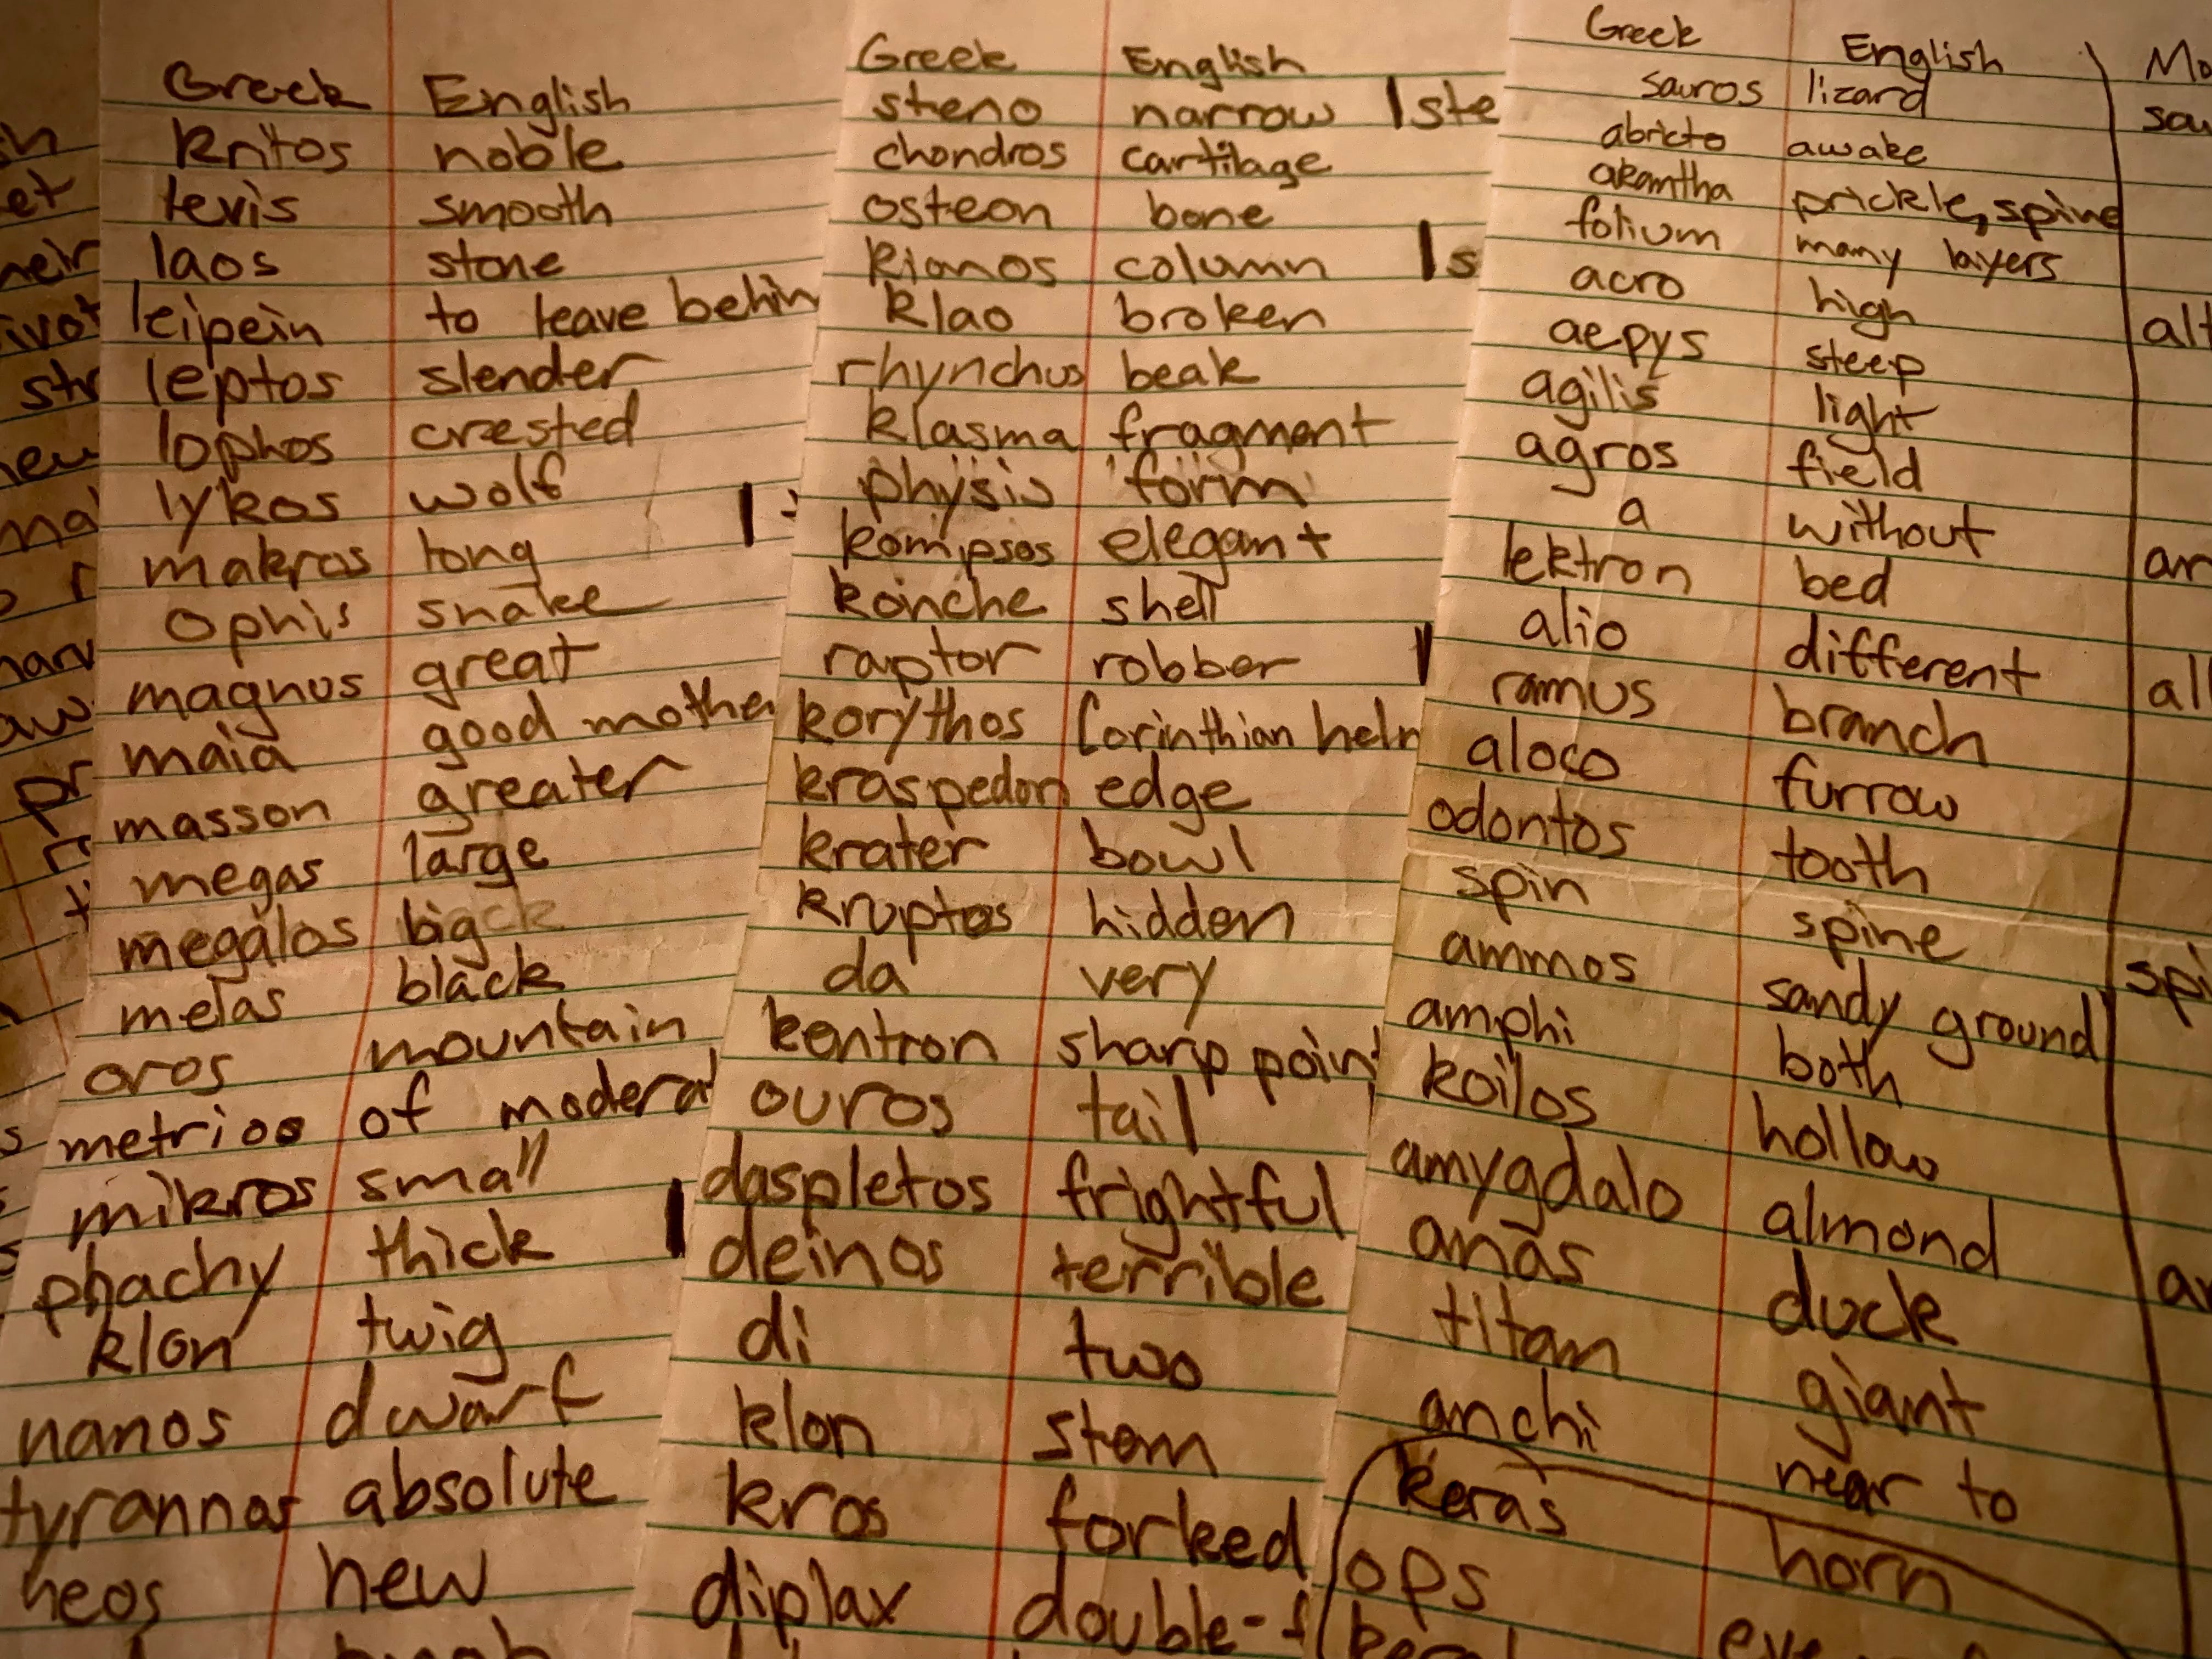 Greek English
kritos noble
levis smooth
laos stone
leipein to leave
leptos slender
lophos crested
lykos wolf
makros long
ophis snake
magnus great
maia good
masson greater
megas large
megalos big
melas black
oros mountain
metrios of
mikros small
phachy thick
klon twig
nanos dwarf
tyrannos absolute
neos new
Greek English
steno narrow
chondros cartilage
osteon bone
kionos column
klao broken
rhynchus beak
klasma fragment
physis form
kompsos elegant
konche shell
raptor robber
korythos Corinthian
kraspedon edge
krater bowl
kruptos hidden
da very
kentron sharp point
ouros tail
daspletos frightful
deinos terrible
di two
klon stem
kros forked
diplax double-
Greek English
sauros lizard
abricto awake
akantha prickle, spine
folium many layers
acro high
aepys steep
agilis light
agros field
a without
lektron bed
alio different
ramus branch
aloco furrow
odontos tooth
spin spine
ammos sandy ground
amphi both
koilos hollow
amygdalo almond
anas duck
titan giant
anchi near to
keras horn
ops